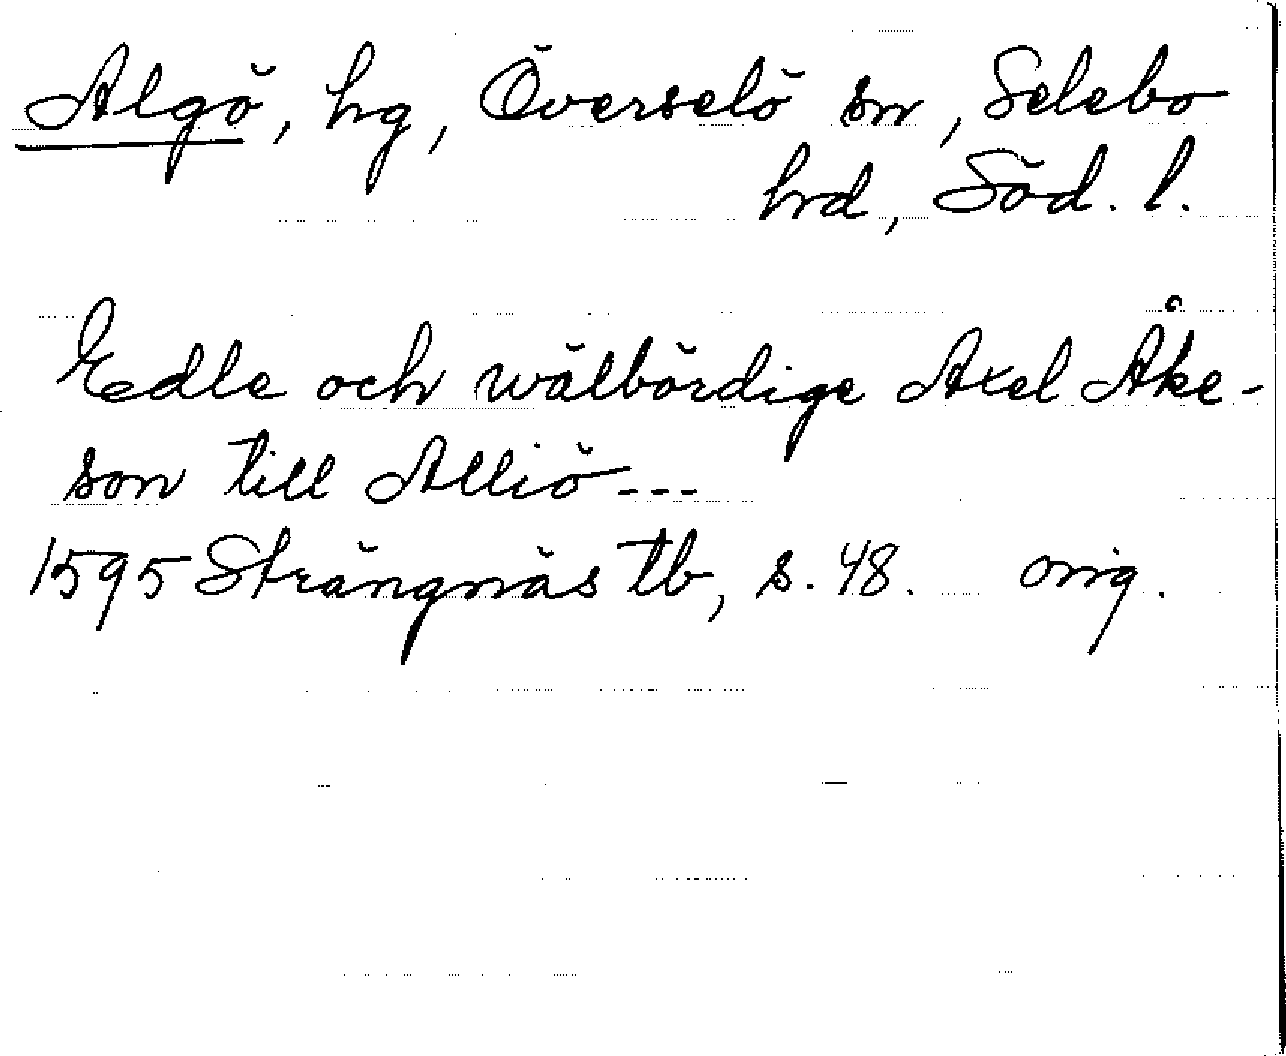 Algö, hg, Överselö sn, Selebo
hrd, Söd. l.
Edle och wälbördige Axel Åke-
son till Alliö---
1595 Strängnäs tb, s. 48. orig.